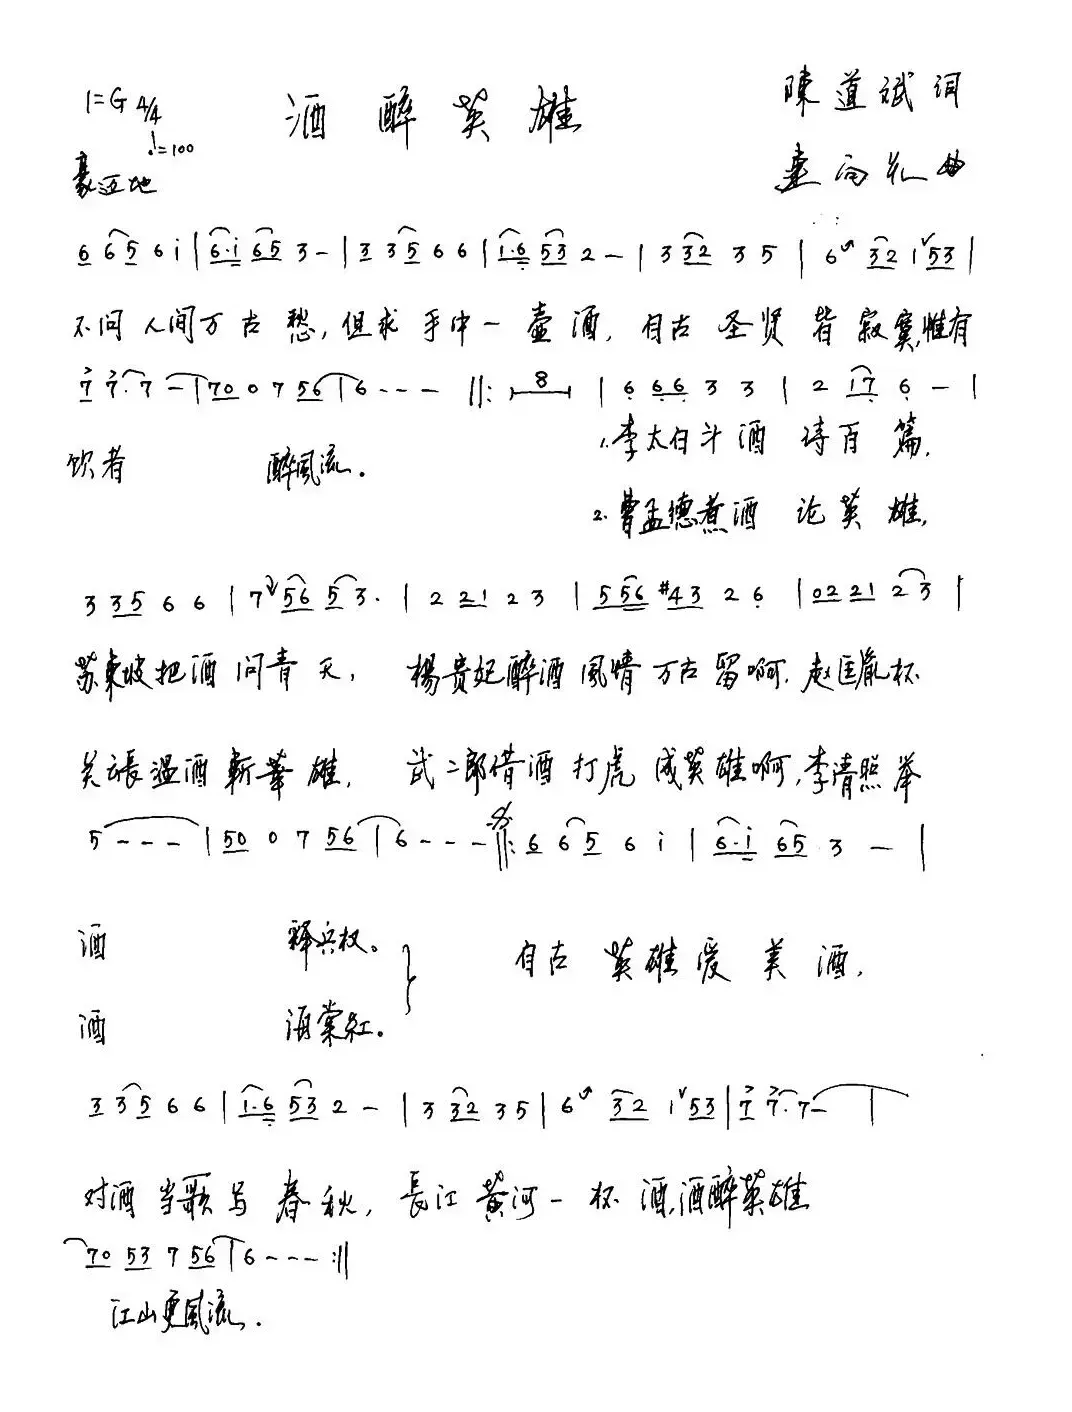 1=G 4/4
酒醉英雄
陳道斌词
♩=100
豪迈地
曲
6 6 5 6 i | 6·i 65 3 - | 3 3 5 6 6 | 1·6 53 2 - | 3 32 3 5 | 6 32 1 53 |
不问人间万古愁,但求手中一壶酒,自古圣贤皆寂寞,惟有
7 7·7 - | 70 0 7 56 | 6 - - - ‖: 8 | 6 66 3 3 | 2 17 6 - |
饮者 醉風流.
1.李太白斗酒诗百篇,
2.曹孟德煮酒论英雄,
3 35 6 6 | 7 56 5 3· | 2 21 2 3 | 5 56 #43 2 6 | 02 21 2 3 |
苏東坡把酒问青天, 楊贵妃醉酒風情万古留啊.赵匡胤杯
关云長温酒斬華雄, 武二郎借酒打虎成英雄啊,李清照举
5 - - - | 50 0 7 56 | 6 - - - ‖: 6 6 5 6 i | 6·i 65 3 - |
酒 释兵权。
自古英雄爱美酒,
酒 海棠紅.
3 3 5 6 6 | 1·6 53 2 - | 3 32 3 5 | 6 32 1 53 | 7 7·7 - |
对酒当歌写春秋, 長江黄河一杯酒,酒醉英雄
70 53 7 56 | 6 - - - :‖
江山更風流.